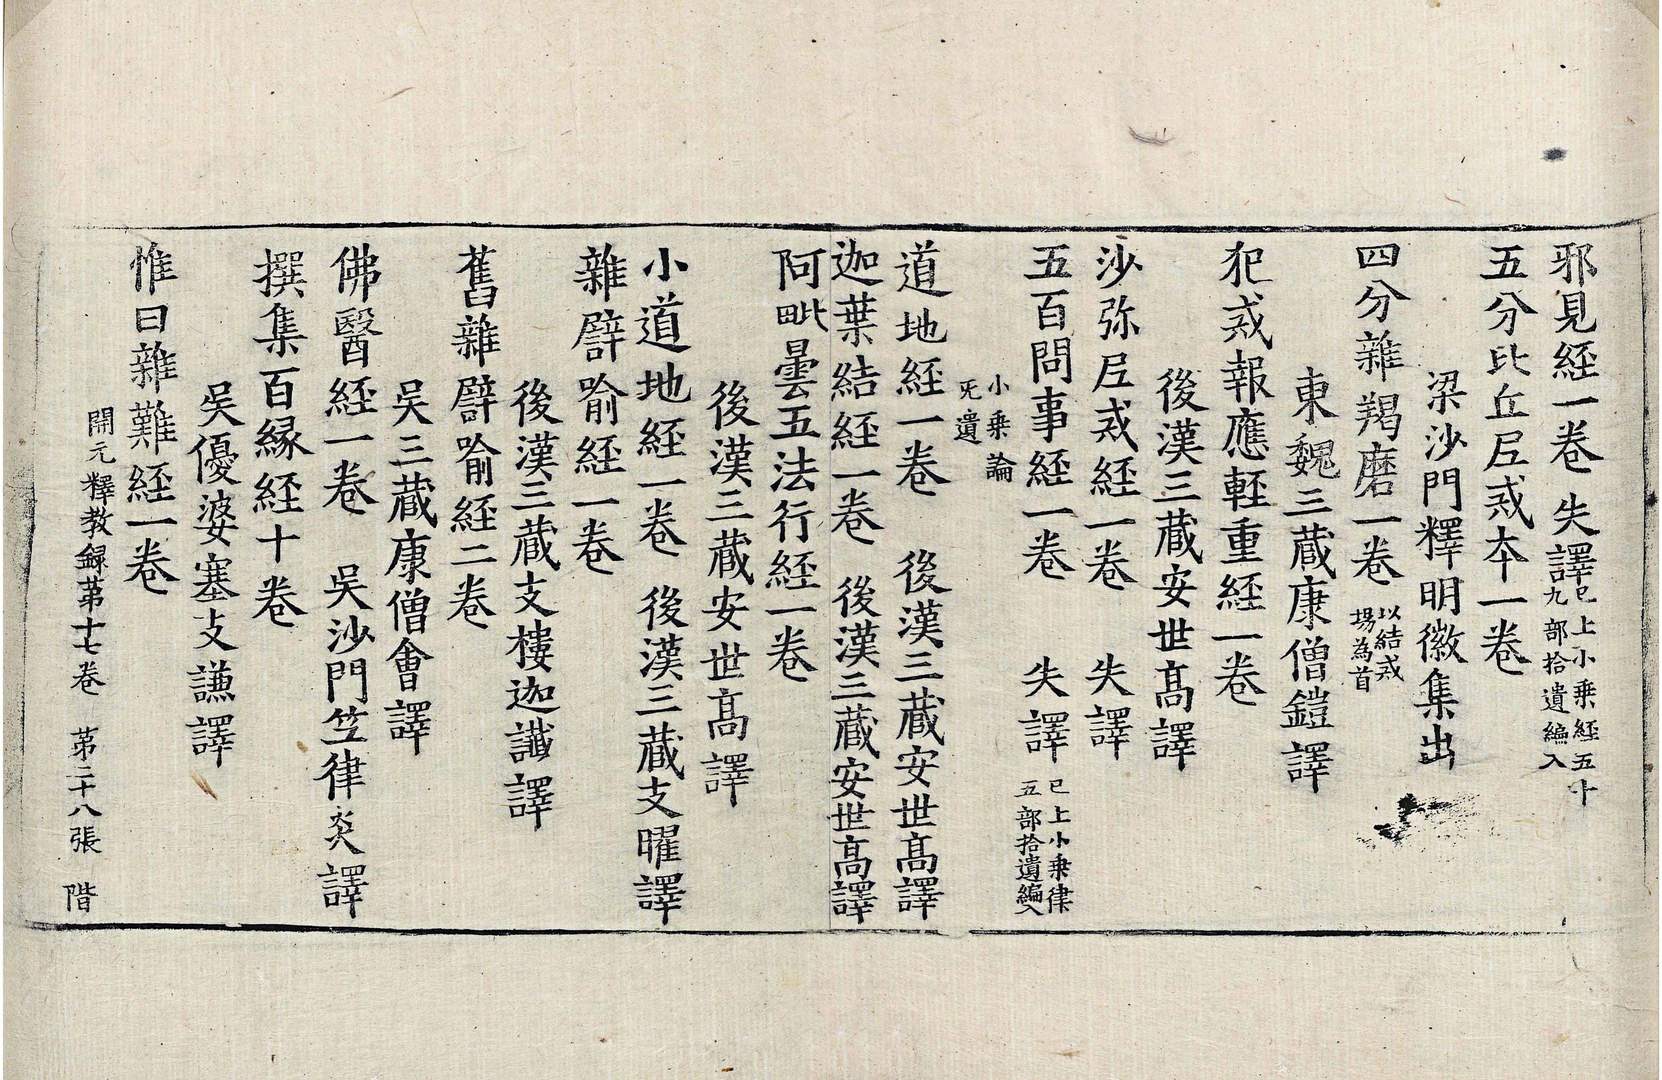 邪見経一卷 失譯 已上小乗経五十九部拾遺編入
五分比丘尼戒夲一卷
梁沙門釋明徽集出
四分雜羯磨一卷 以結戒場為首
東魏三蔵康僧鎧譯
犯戒報應軽重経一卷
後漢三蔵安世髙譯
沙弥尼戒経一卷 失譯
五百問事経一卷 失譯 已上小乗律五部拾遺編入
小乗論旡遺
道地経一卷 後漢三蔵安世髙譯
迦葉結経一卷 後漢三蔵安世髙譯
阿毗曇五法行経一卷
後漢三蔵安世髙譯
小道地経一卷 後漢三蔵支曜譯
雜譬喻経一卷
後漢三蔵支樓迦讖譯
舊雜譬喻経二卷
吳三蔵康僧會譯
佛醫経一卷 吳沙門竺律炎譯
撰集百縁経十卷
吳優婆塞支謙譯
惟曰雜難経一卷
開元釋教録苐十七卷 苐二十八張 階